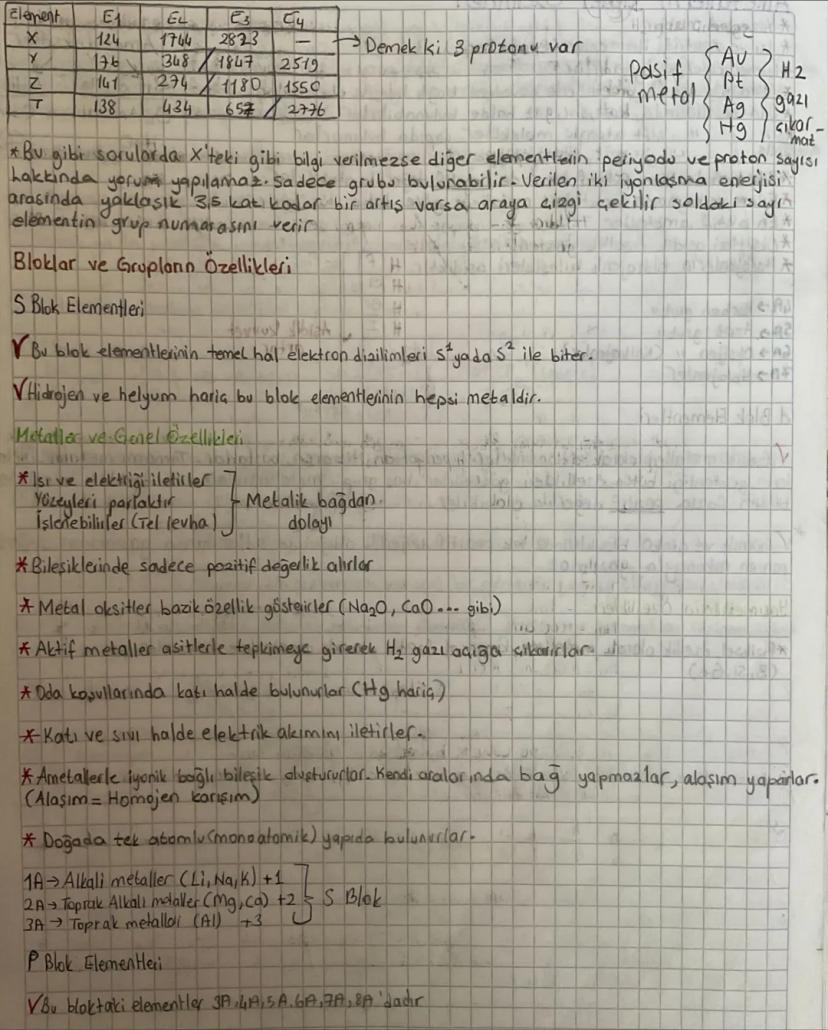 Element E1 E2 E3 E4
X 124 1744 2823 —
Y 176 348 1847 2519
Z 141 274 1180 1550
T 138 434 657 2776
→ Demek ki 3 protonu var
Pasif metal
Au
Pt
Ag
Hg
H2 gazı çıkarmaz
*Bu gibi sorularda X'teki gibi bilgi verilmezse diğer elementlerin periyodu ve proton sayısı
hakkında yorum yapılamaz. Sadece grubu bulunabilir. Verilen iki iyonlaşma enerjisi
arasında yaklaşık 3,5 kat kadar bir artış varsa araya çizgi çekilir soldaki sayı
elementin grup numarasını verir
Bloklar ve Grupların Özellikleri
S Blok Elementleri
√ Bu blok elementlerinin temel hal elektron dizilimleri S¹ yada S² ile biter.
√ Hidrojen ve helyum hariç bu blok elementlerinin hepsi metaldir.
Metaller ve Genel Özellikleri
* Isı ve elektriği iletirler
Yüzeyleri parlaktır
İşlenebilirler (Tel levha)
Metalik bağdan
dolayı
* Bileşiklerinde sadece pozitif değerlik alırlar
* Metal oksitler bazik özellik gösterirler (Na₂O, CaO... gibi)
* Aktif metaller asitlerle tepkimeye girerek H₂ gazı açığa çıkarırlar.
* Oda koşullarında katı halde bulunurlar (Hg hariç)
* Katı ve sıvı halde elektrik akımını iletirler.
* Ametallerle iyonik bağlı bileşik oluştururlar. Kendi aralarında bağ yapmazlar, alaşım yaparlar.
(Alaşım = Homojen karışım)
* Doğada tek atomlu (monoatomik) yapıda bulunurlar.
1A → Alkali metaller (Li, Na, K) +1
2A → Toprak Alkali metaller (Mg, Ca) +2
3A → Toprak metalleri (Al) +3
S Blok
P Blok Elementleri
√ Bu bloktaki elementler 3A, 4A, 5A, 6A, 7A, 8A'dadır